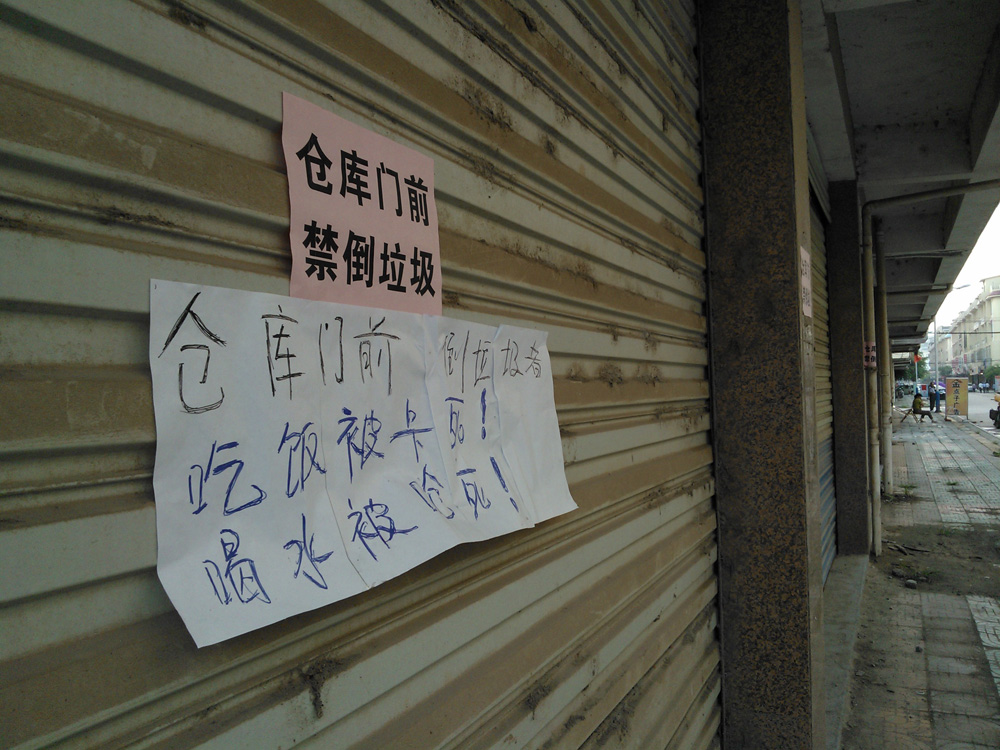 仓库门前
禁倒垃圾
仓库门前倒垃圾者
吃饭被卡死!
喝水被呛死!